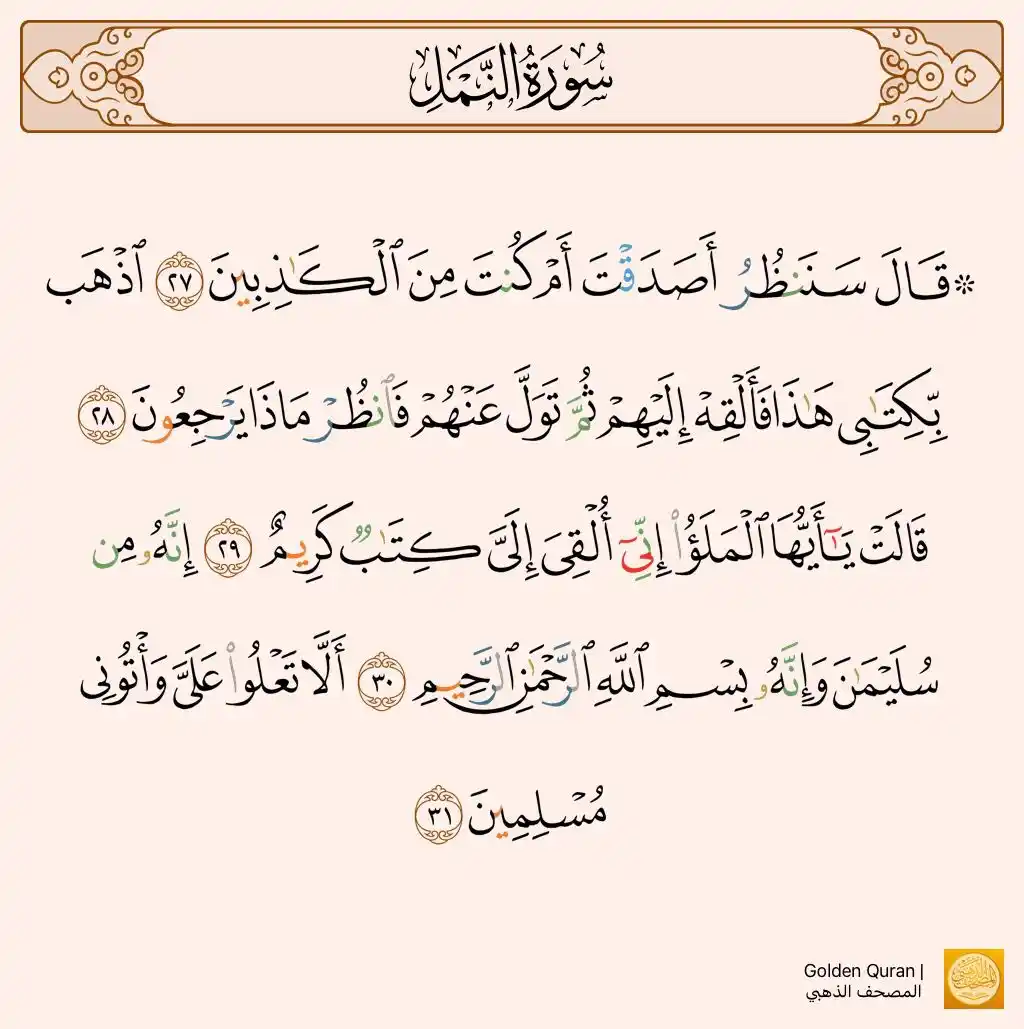 سُورَةُ النَّمْلِ
۞ قَالَ سَنَنظُرُ أَصَدَقْتَ أَمْ كُنتَ مِنَ ٱلْكَـٰذِبِينَ ٢٧ ٱذْهَب
بِّكِتَـٰبِى هَـٰذَا فَأَلْقِهْ إِلَيْهِمْ ثُمَّ تَوَلَّ عَنْهُمْ فَٱنظُرْ مَاذَا يَرْجِعُونَ ٢٨
قَالَتْ يَـٰٓأَيُّهَا ٱلْمَلَؤُا۟ إِنِّىٓ أُلْقِىَ إِلَىَّ كِتَـٰبٌ كَرِيمٌ ٢٩ إِنَّهُۥ مِن
سُلَيْمَـٰنَ وَإِنَّهُۥ بِسْمِ ٱللَّهِ ٱلرَّحْمَـٰنِ ٱلرَّحِيمِ ٣٠ أَلَّا تَعْلُوا۟ عَلَىَّ وَأْتُونِى
مُسْلِمِينَ ٣١
Golden Quran |
المصحف الذهبي